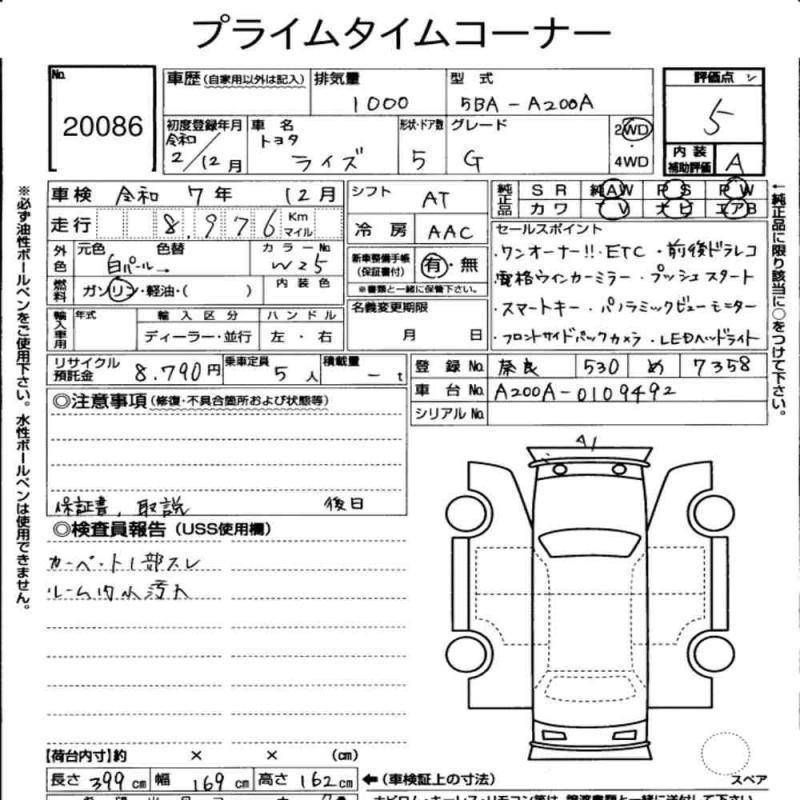 プライムタイムコーナー
No. 20086
車歴 (自家用以外は記入)
排気量 1000
型式 5BA-A200A
評価点 5
初度登録年月 令和 2/12月
車名 トヨタ ライズ
形状・ドア数 5
グレード G
2WD
4WD
内装補助評価 A
車検 令和 7年 12月
シフト AT
純正品 SR 純AW PS PW
カワ TV ナビ エアB
走行 8,976 Km マイル
冷房 AAC
セールスポイント
・ワンオーナー!!・ETC・前後ドラレコ
電格ウインカーミラー・プッシュスタート
・スマートキー・パノラミックビューモニター
・フロントサイドバックカメラ・LEDヘッドライト
外色 元色 白パール→ 色替
カラーNo. W25
新車整備手帳(保証書付) 有・無
※書類と一緒に保管下さい。
燃料 ガソリン・軽油・( )
内装色
名義変更期限 月 日
輸入車用 年式 輸入区分 ハンドル
ディーラー・並行 左・右
リサイクル預託金 8,790円
乗車定員 5人
積載量 - t
登録No. 奈良 530 め 7358
車台No. A200A-0109492
シリアルNo.
◎注意事項(修復・不具合箇所および状態等)
保証書、取説 後日
◎検査員報告(USS使用欄)
カーペット1部スレ
ルーム内小汚れ
A1
【荷台内寸】約 × × (cm)
長さ 399cm 幅 169cm 高さ 162cm
←(車検証上の寸法)
スペア
※必ず油性ボールペンをご使用下さい。水性ボールペンは使用できません。
←純正品に限り該当に○をつけて下さい。